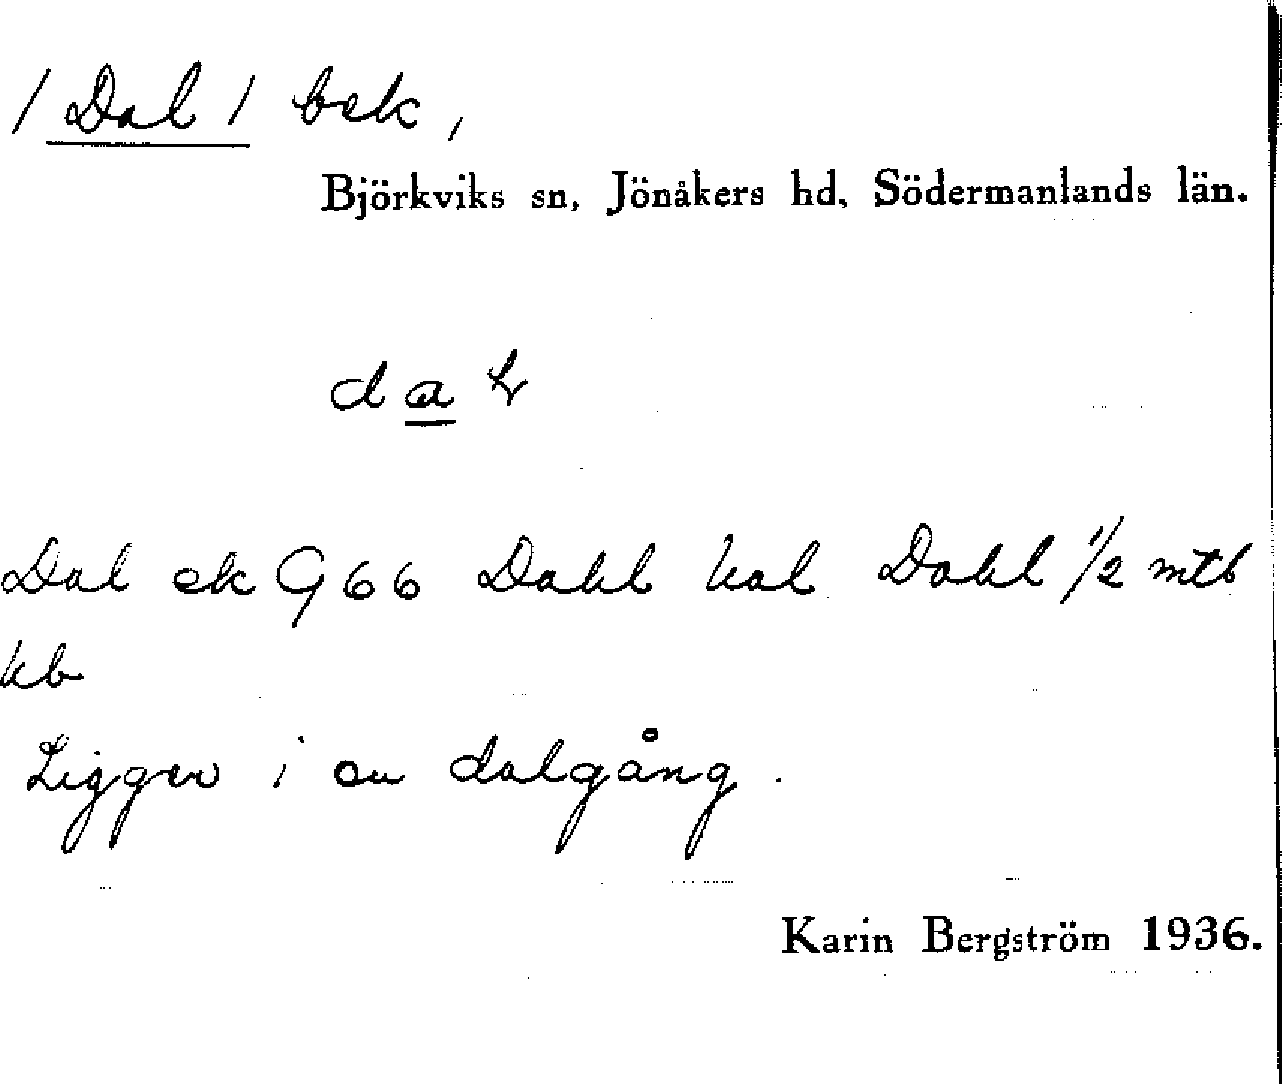 / Dal / bek,
Björkviks sn, Jönåkers hd, Södermanlands län.
dal
Dal ek G 66 Dahl kal Dahl 1/2 mtl
kb
Ligger i en dalgång.
Karin Bergström 1936.